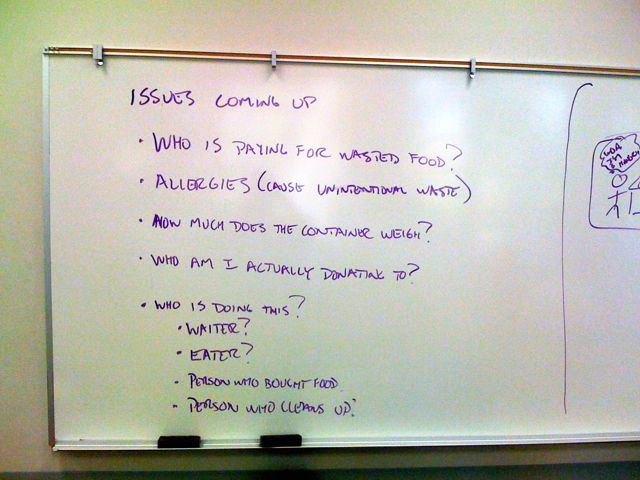 ISSUES COMING UP
• WHO IS PAYING FOR WASTED FOOD?
• ALLERGIES (CAUSE UNINTENTIONAL WASTE)
• HOW MUCH DOES THE CONTAINER WEIGH?
• WHO AM I ACTUALLY DONATING TO?
• WHO IS DOING THIS?
• WAITER?
• EATER?
• PERSON WHO BOUGHT FOOD
• PERSON WHO CLEANS UP?